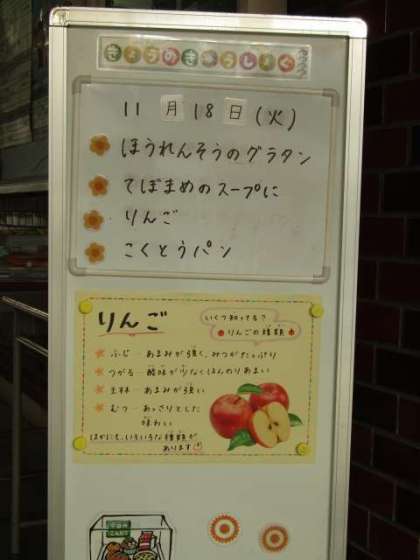 きょうのきゅうしょく
11月18日(火)
ほうれんそうのグラタン
てぼまめのスープに
りんご
こくとうパン
りんご
いくつ知ってる?
りんごの種類
ふじ―あまみが強く、みつがたっぷり
つがる―酸味が少なくほんのりあまい
王林―あまみが強い
むつ―あっさりとした
味わい
ほかにも、いろいろな種類が
あります